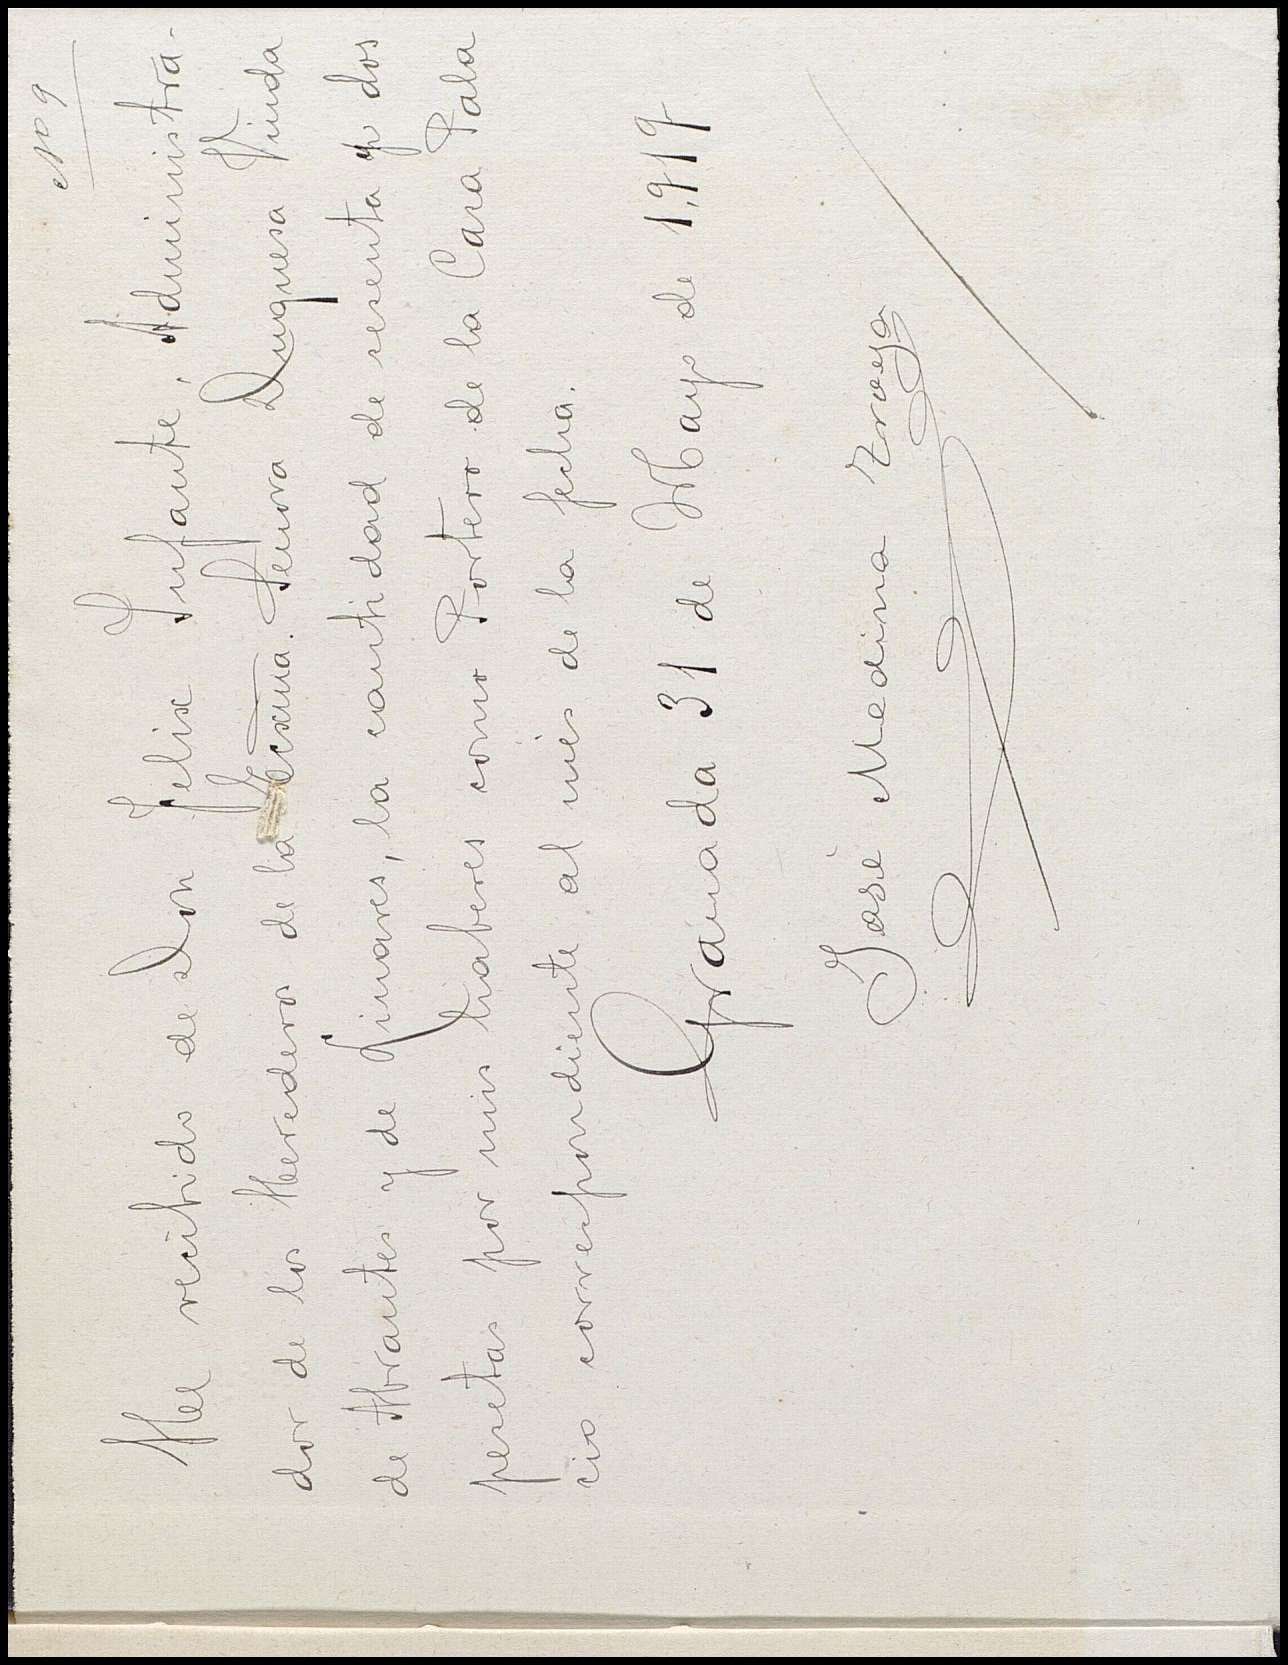 Nº 9
He recibido de Don Felix Infante, Administra-
dor de los Herederos de la Excma. Señora Duquesa Viuda
de Abrantes y de Linares, la cantidad de sesenta y dos
pesetas por mis haberes como Portero de la Casa Pala
cio correspondiente al mes de la fecha.
Granada 31 de Mayo de 1,919
José Medina Troya